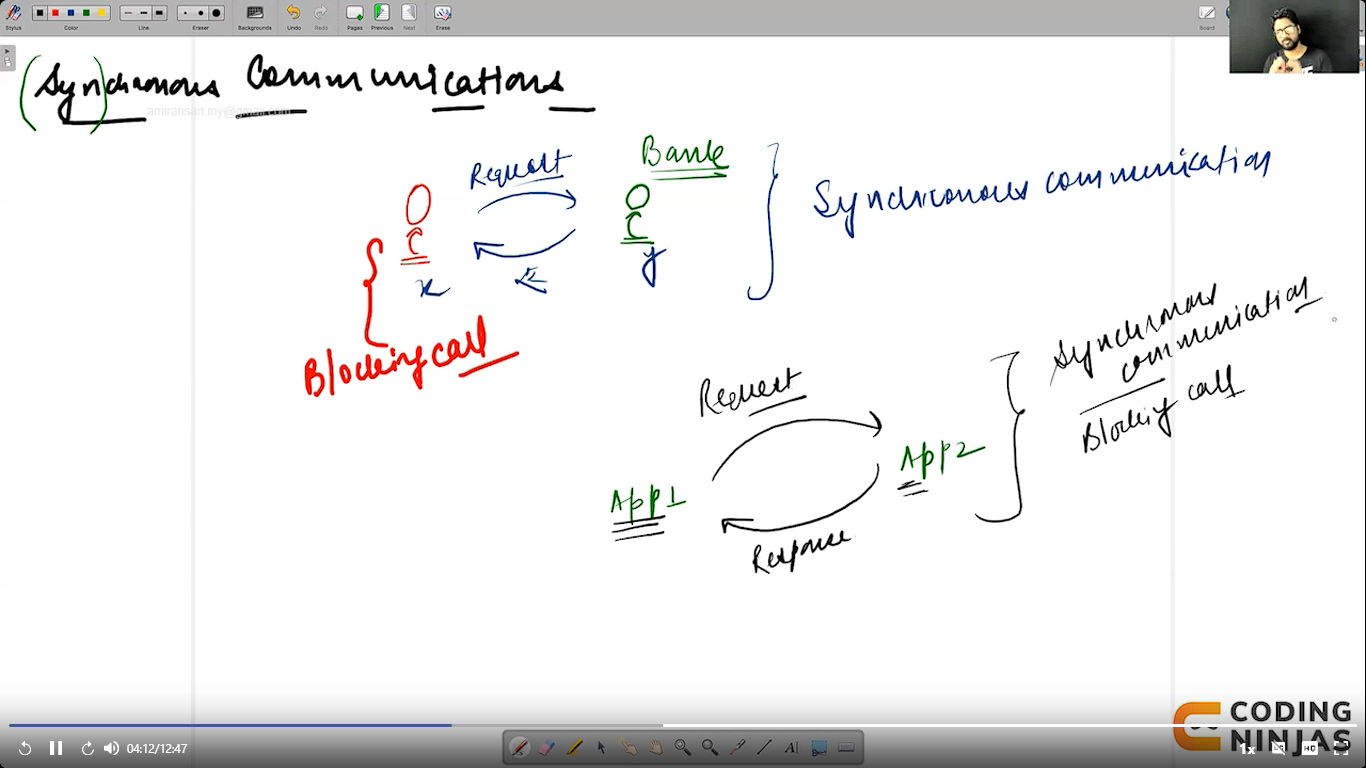 Stylus
Color
Line
Eraser
Backgrounds
Undo
Redo
Pages
Previous
Next
Erase
Board
(Syn)chronous Communications
amiransari.my@gmail.com
Request
Bank
Synchronous communication
x
y
Blocking call
Synchronous
communication
Blocking call
Request
App1
App2
Response
CODING
NINJAS
04:12/12:47
1x
HD